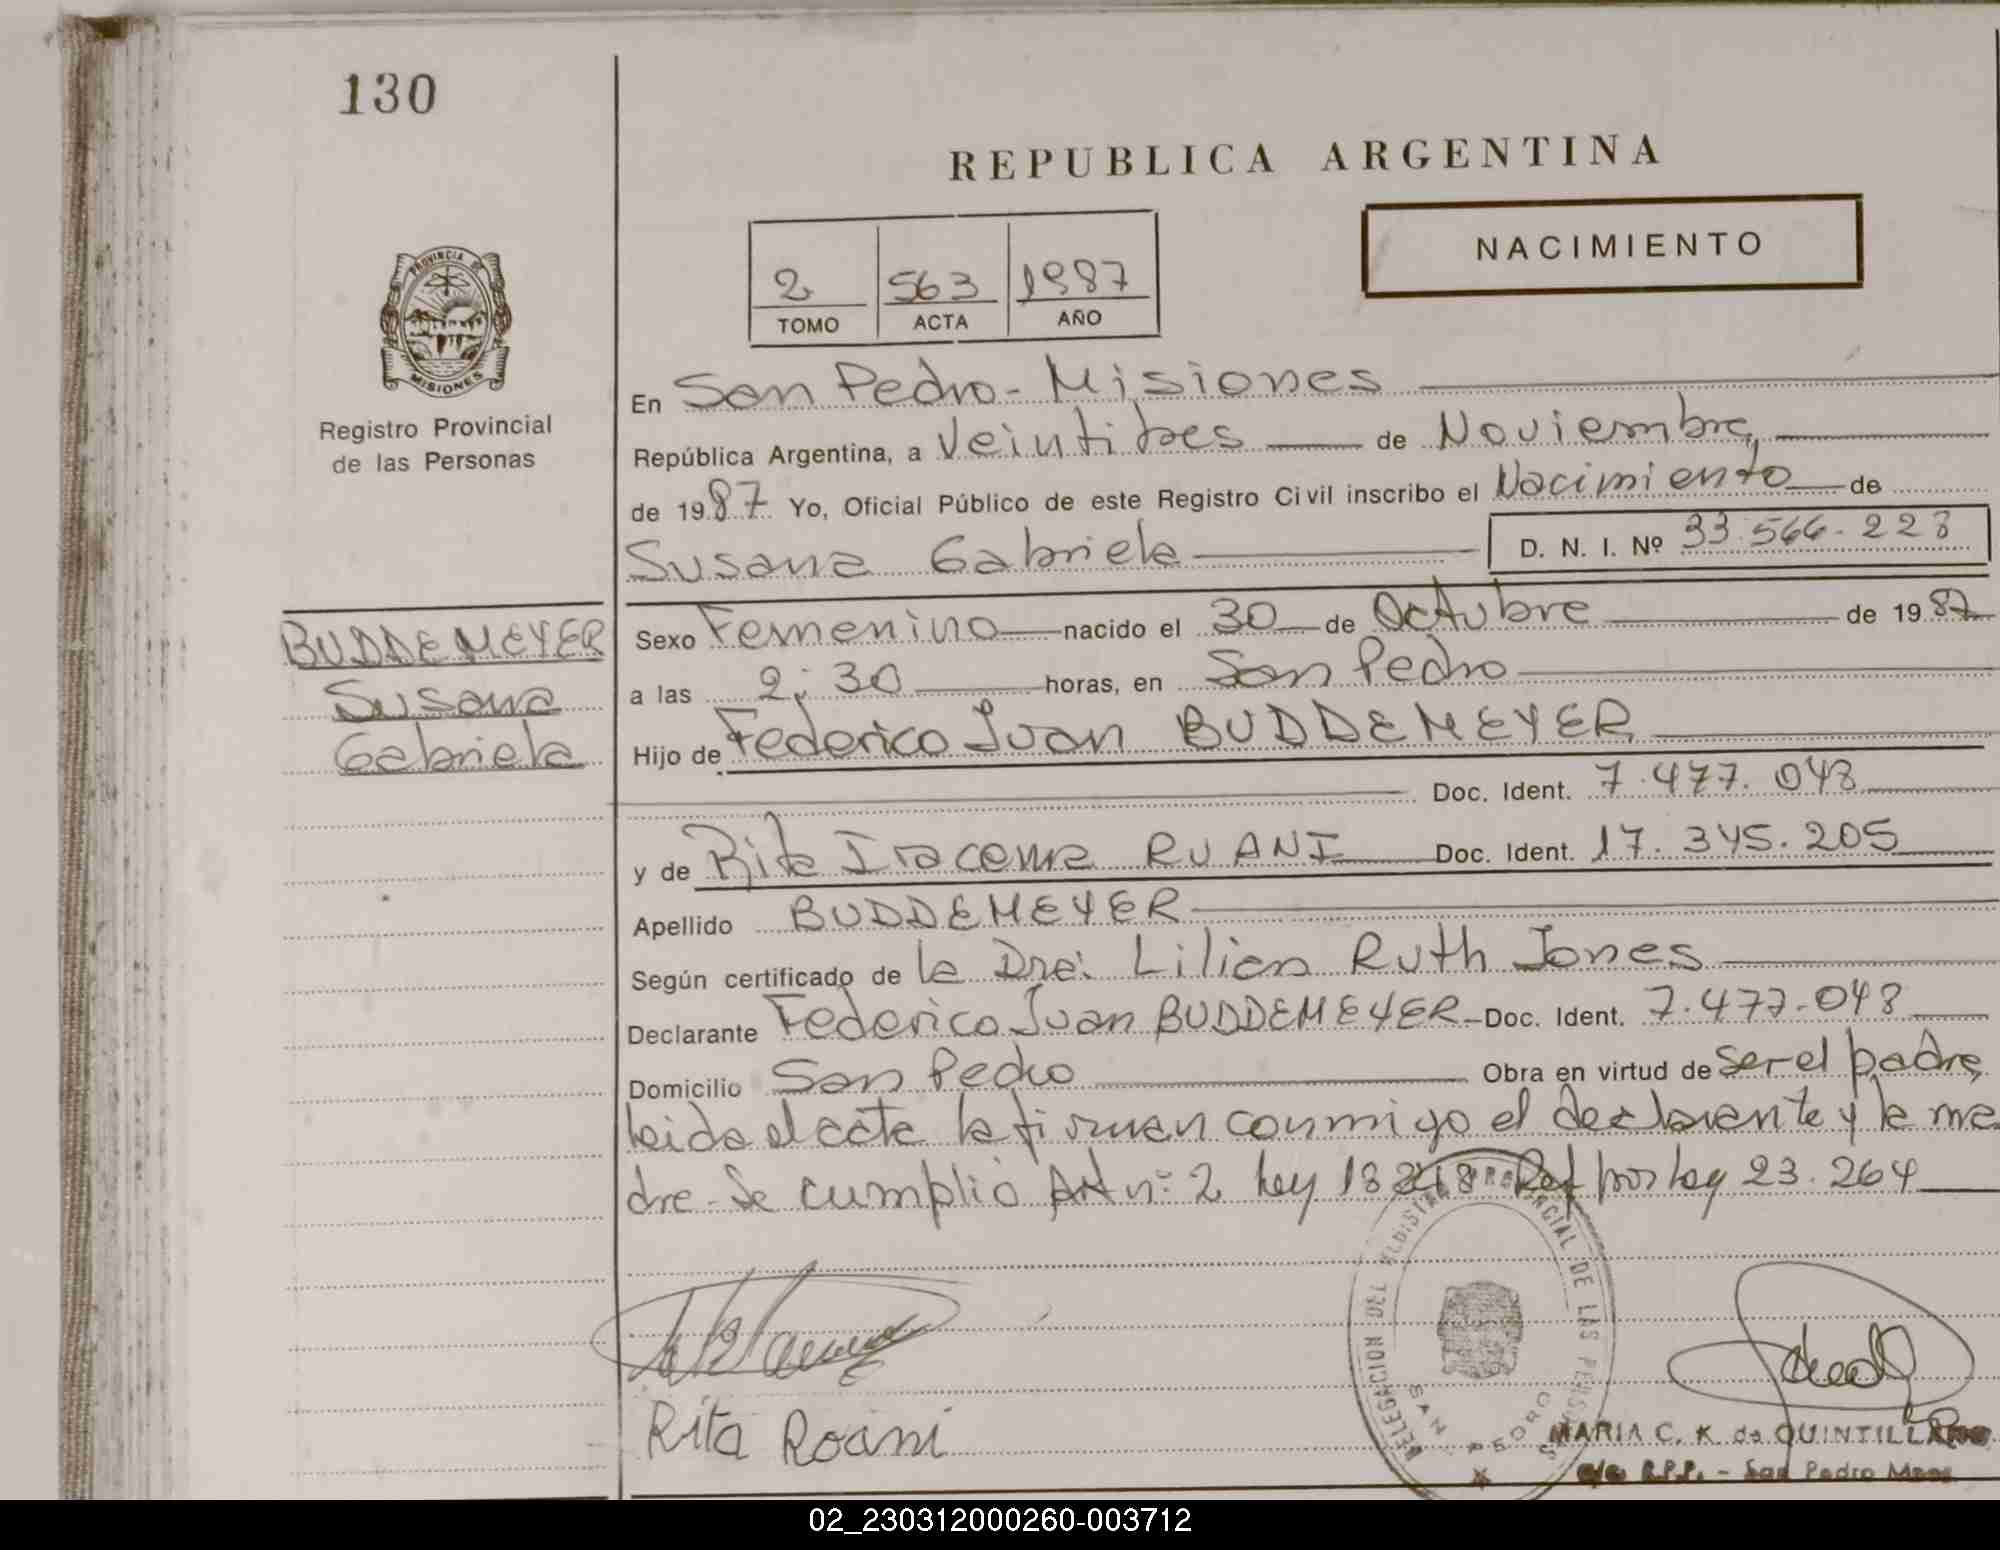 130
REPUBLICA ARGENTINA
NACIMIENTO
2 563 1987
TOMO ACTA AÑO
PROVINCIA DE
MISIONES
Registro Provincial
de las Personas
En San Pedro - Misiones
República Argentina, a Veintitres de Noviembre,
de 1987 Yo, Oficial Público de este Registro Civil inscribo el Nacimiento de
Susana Gabriela D. N. I. Nº 33.566.228
BUDDEMEYER
Susana
Gabriela
Sexo Femenino nacido el 30 de Octubre de 1987
a las 2;30 horas, en San Pedro
Hijo de Federico Juan BUDDEMEYER
Doc. Ident. 7.477.048
y de Rita Iracema RUANI Doc. Ident. 17.345.205
Apellido BUDDEMEYER
Según certificado de la Dra: Lilian Ruth Jones
Declarante Federico Juan BUDDEMEYER - Doc. Ident. 7.477.048
Domicilio San Pedro Obra en virtud de ser el padre,
leida el acta la firman conmigo el declarante y la ma
dre - Se cumplió Art nº 2 ley 18248 Ref por ley 23.264
DELEGACION DEL REGISTRO PROVINCIAL DE LAS PERSONAS
SAN PEDRO
Rita Roani
MARIA C. K. de QUINTILLAN
R.P.P. - San Pedro Mnes
02_230312000260-003712